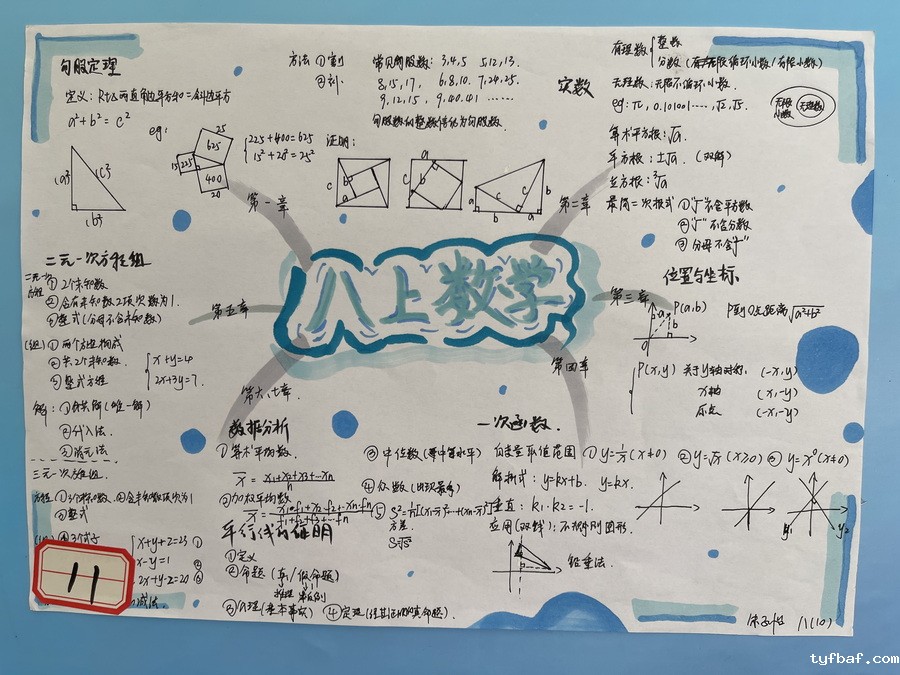 八上数学
勾股定理
定义：Rt△两直角边平方和=斜边平方
a²+b²=c²
eg:
25
625
15
225
400
20
225+400=625
15²+20²=25²
方法 ①割
②补
常见勾股数：3,4,5 5,12,13.
8,15,17, 6,8,10. 7,24,25.
9,12,15, 9,40,41 ......
勾股数的整数倍仍为勾股数.
证明：
第一章
实数
有理数
整数
分数（有无限循环小数/有限小数）
无理数：无限不循环小数
eg: π, 0.101001...., √2, √5.
无限小数
无理数
算术平方根：√a.
平方根：±√a. (双解)
立方根：³√a
第二章
最简二次根式 ①"√"不含平方数
②"√"不含分数
③分母不含"√"
位置与坐标
第三章
P(a,b)
P到O点距离√a²+b²
P(x,y) 关于y轴对称, (-x,y)
x轴 (x,-y)
原点 (-x,-y)
第四章
一次函数
自变量取值范围 ①y=1/x(x≠0) ②y=√x(x≥0) ③y=x⁰(x≠0)
解析式：y=kx+b. y=kx.
垂直：k₁·k₂=-1.
y₁
y₂
铅垂法.
第五章
二元一次方程组
二元一次方程
①2个未知数
②含有未知数2项次数为1.
③整式(分母不含未知数)
(组)①两个方程构成
②共2个未知数.
③整式方程
x+y=4
2x+3y=7.
解：①公共解(唯一解)
②代入法.
③消元法
三元一次方程组.
方程①3个未知数②含未知数项次为1
③整式
x+y+z=23 ①
x-y=1 ②
2x+y-z=20 ③
11
第六、七章
数据分析
①算术平均数.
②加权平均数
③中位数(等中等水平)
④众数(出现最多)
⑤
方差.
平行线的证明
①定义
②命题(真/假命题)
③公理(基本事实) ④定理(经过证明的真命题.)
八(10)
tyfbaf.com